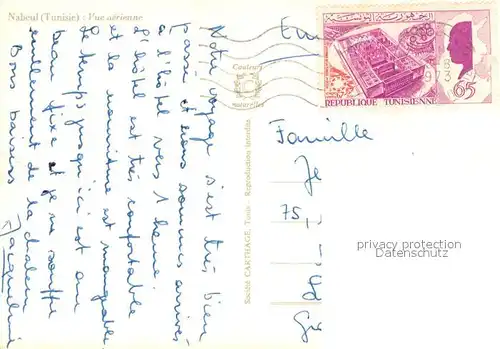 Nabeul (Tunisie) : Vue aérienne
Notre voyage s'est très bien
passé et nous sommes arrivés
à l'hôtel vers 1 heure.
L'hôtel est très confortable
et la nourriture est mangeable
Le temps jusqu'ici est au
beau fixe et je ne souffre
nullement de la chaleur
Bons baisers
Jacqueline
Couleurs
naturelles
Société CARTHAGE, Tunis - Reproduction Interdite
REPUBLIQUE TUNISIENNE
65
Famille
Je
75,
privacy protection
Datenschutz